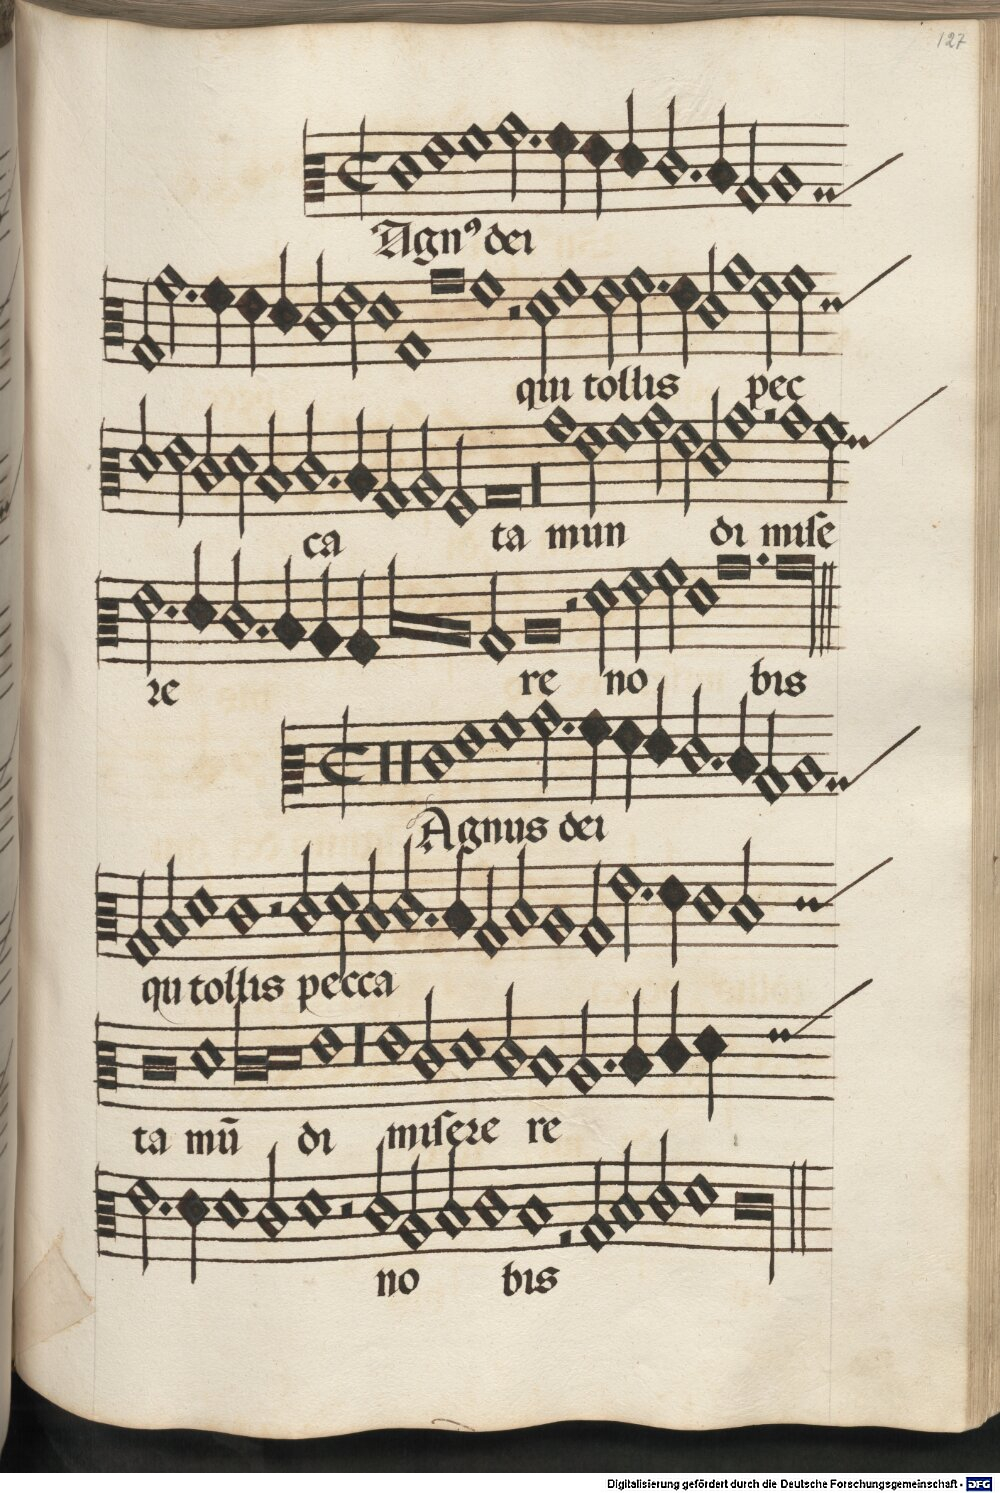 127
Agnꝰ dei
qui tollis pec
ca ta mun di miſe
re re no bis
Agnus dei
qui tollis pecca
ta mū di miſere re
no bis
Digitalisierung gefördert durch die Deutsche Forschungsgemeinschaft - DFG